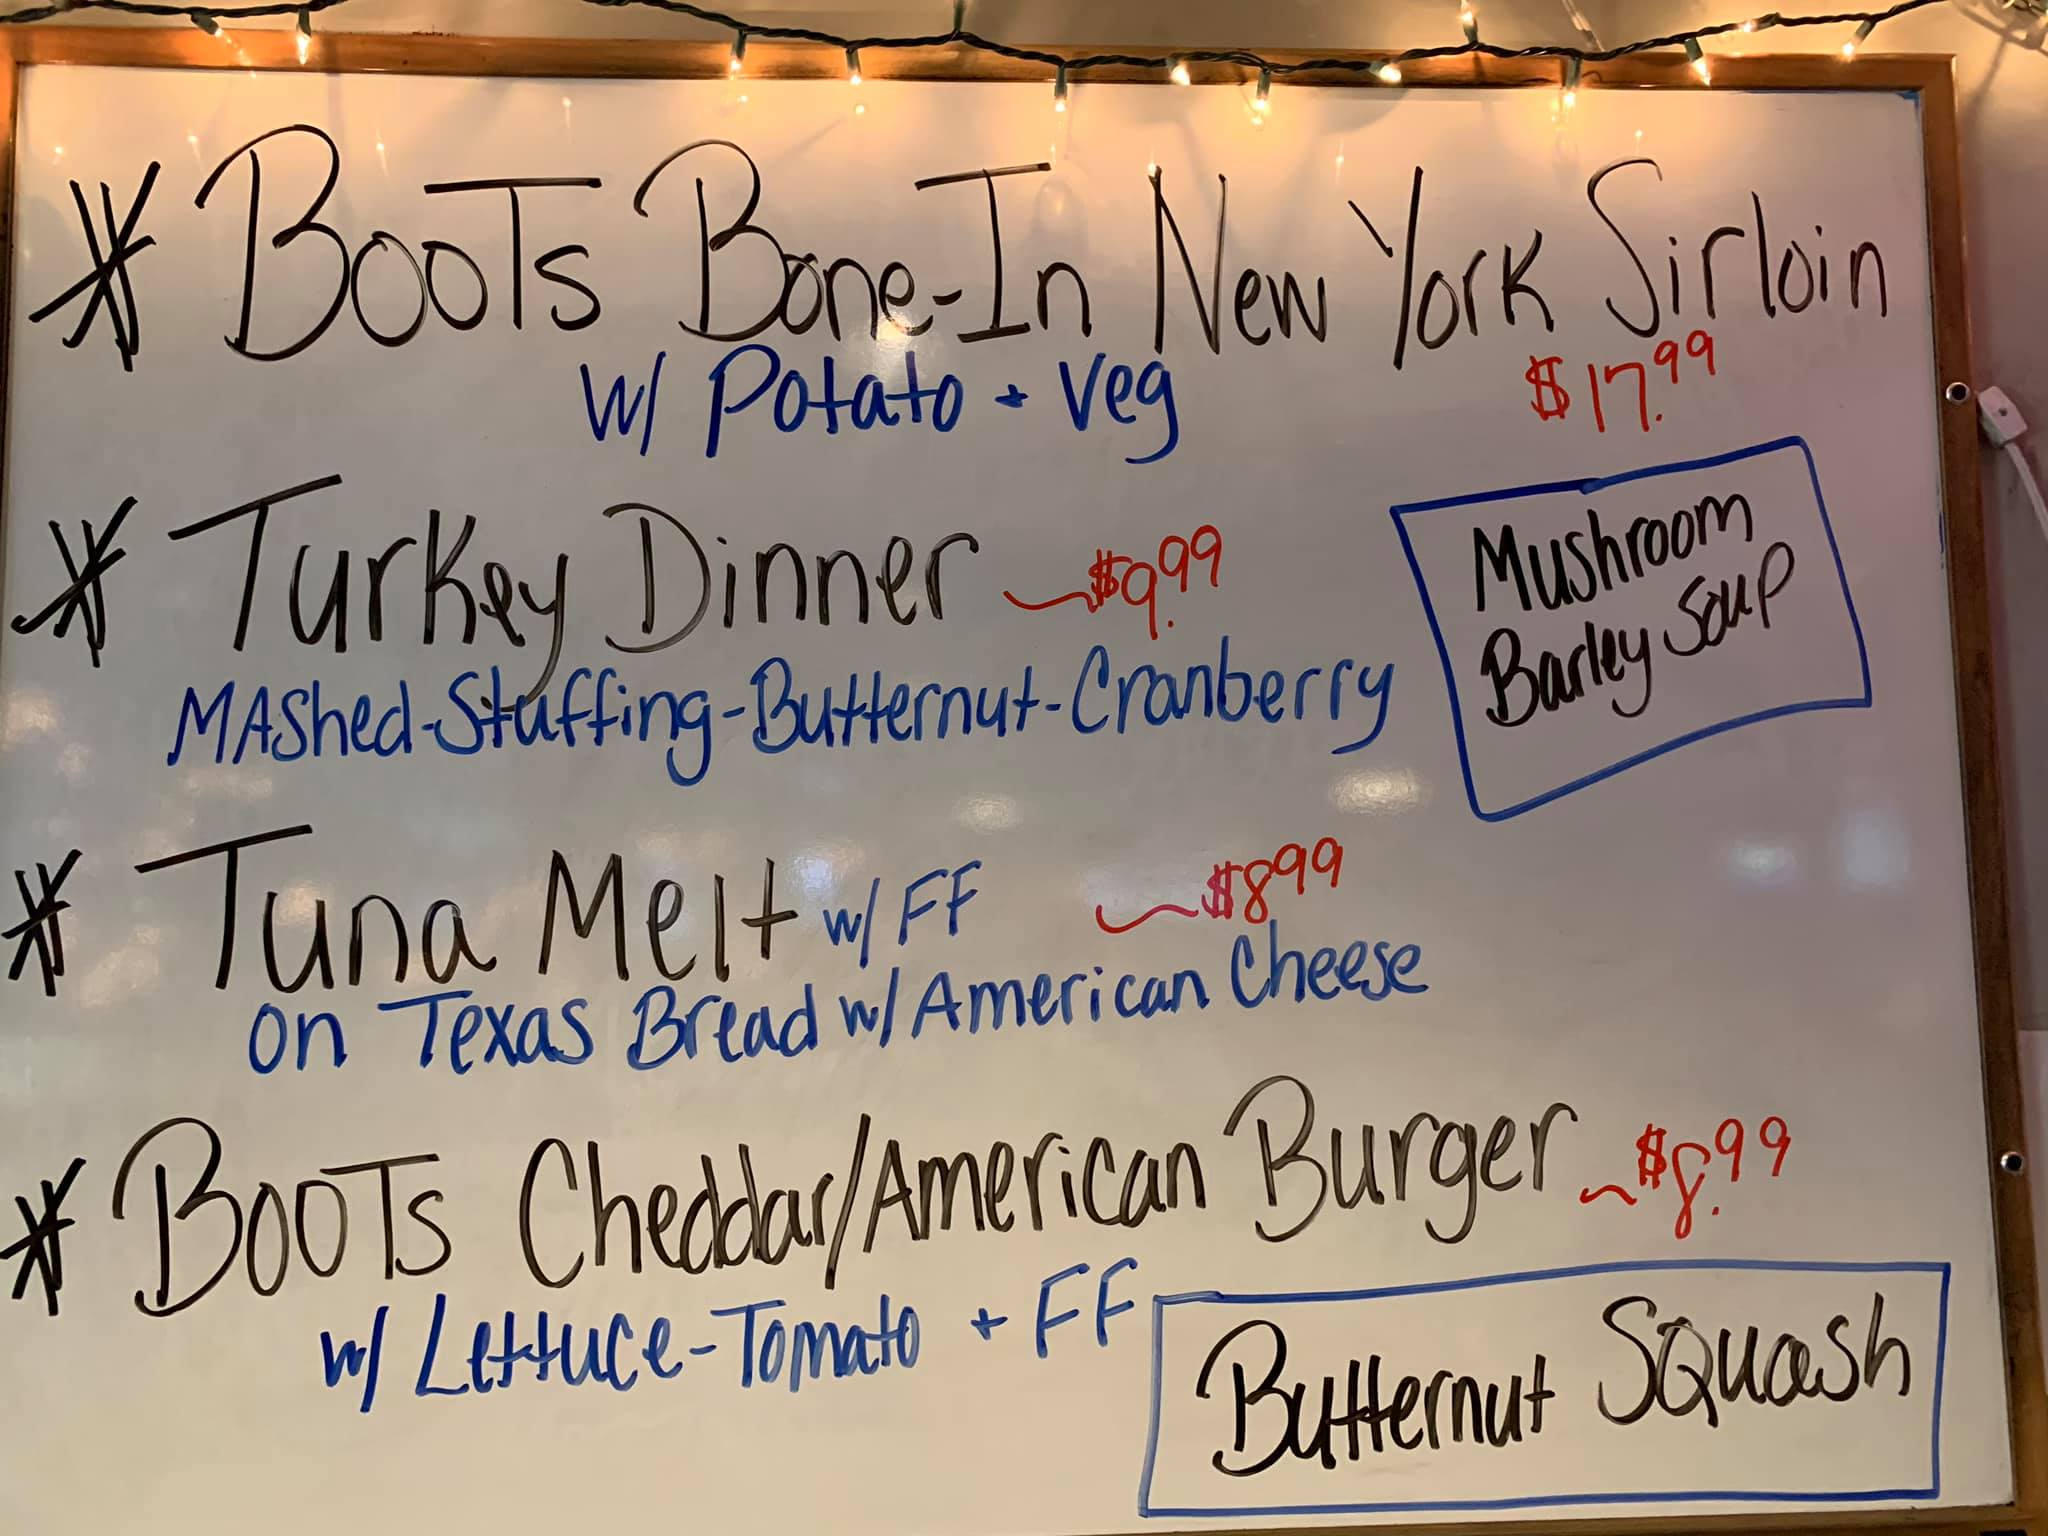 * Boots Bone-In New York Sirloin
w/ Potato + Veg $17.99
* Turkey Dinner ~$9.99
MAShed-Stuffing-Butternut-Cranberry
Mushroom
Barley Soup
* Tuna Melt w/ FF ~$8.99
on Texas Bread w/ American Cheese
* Boots Cheddar/American Burger ~$8.99
w/ Lettuce-Tomato + FF
Butternut Squash